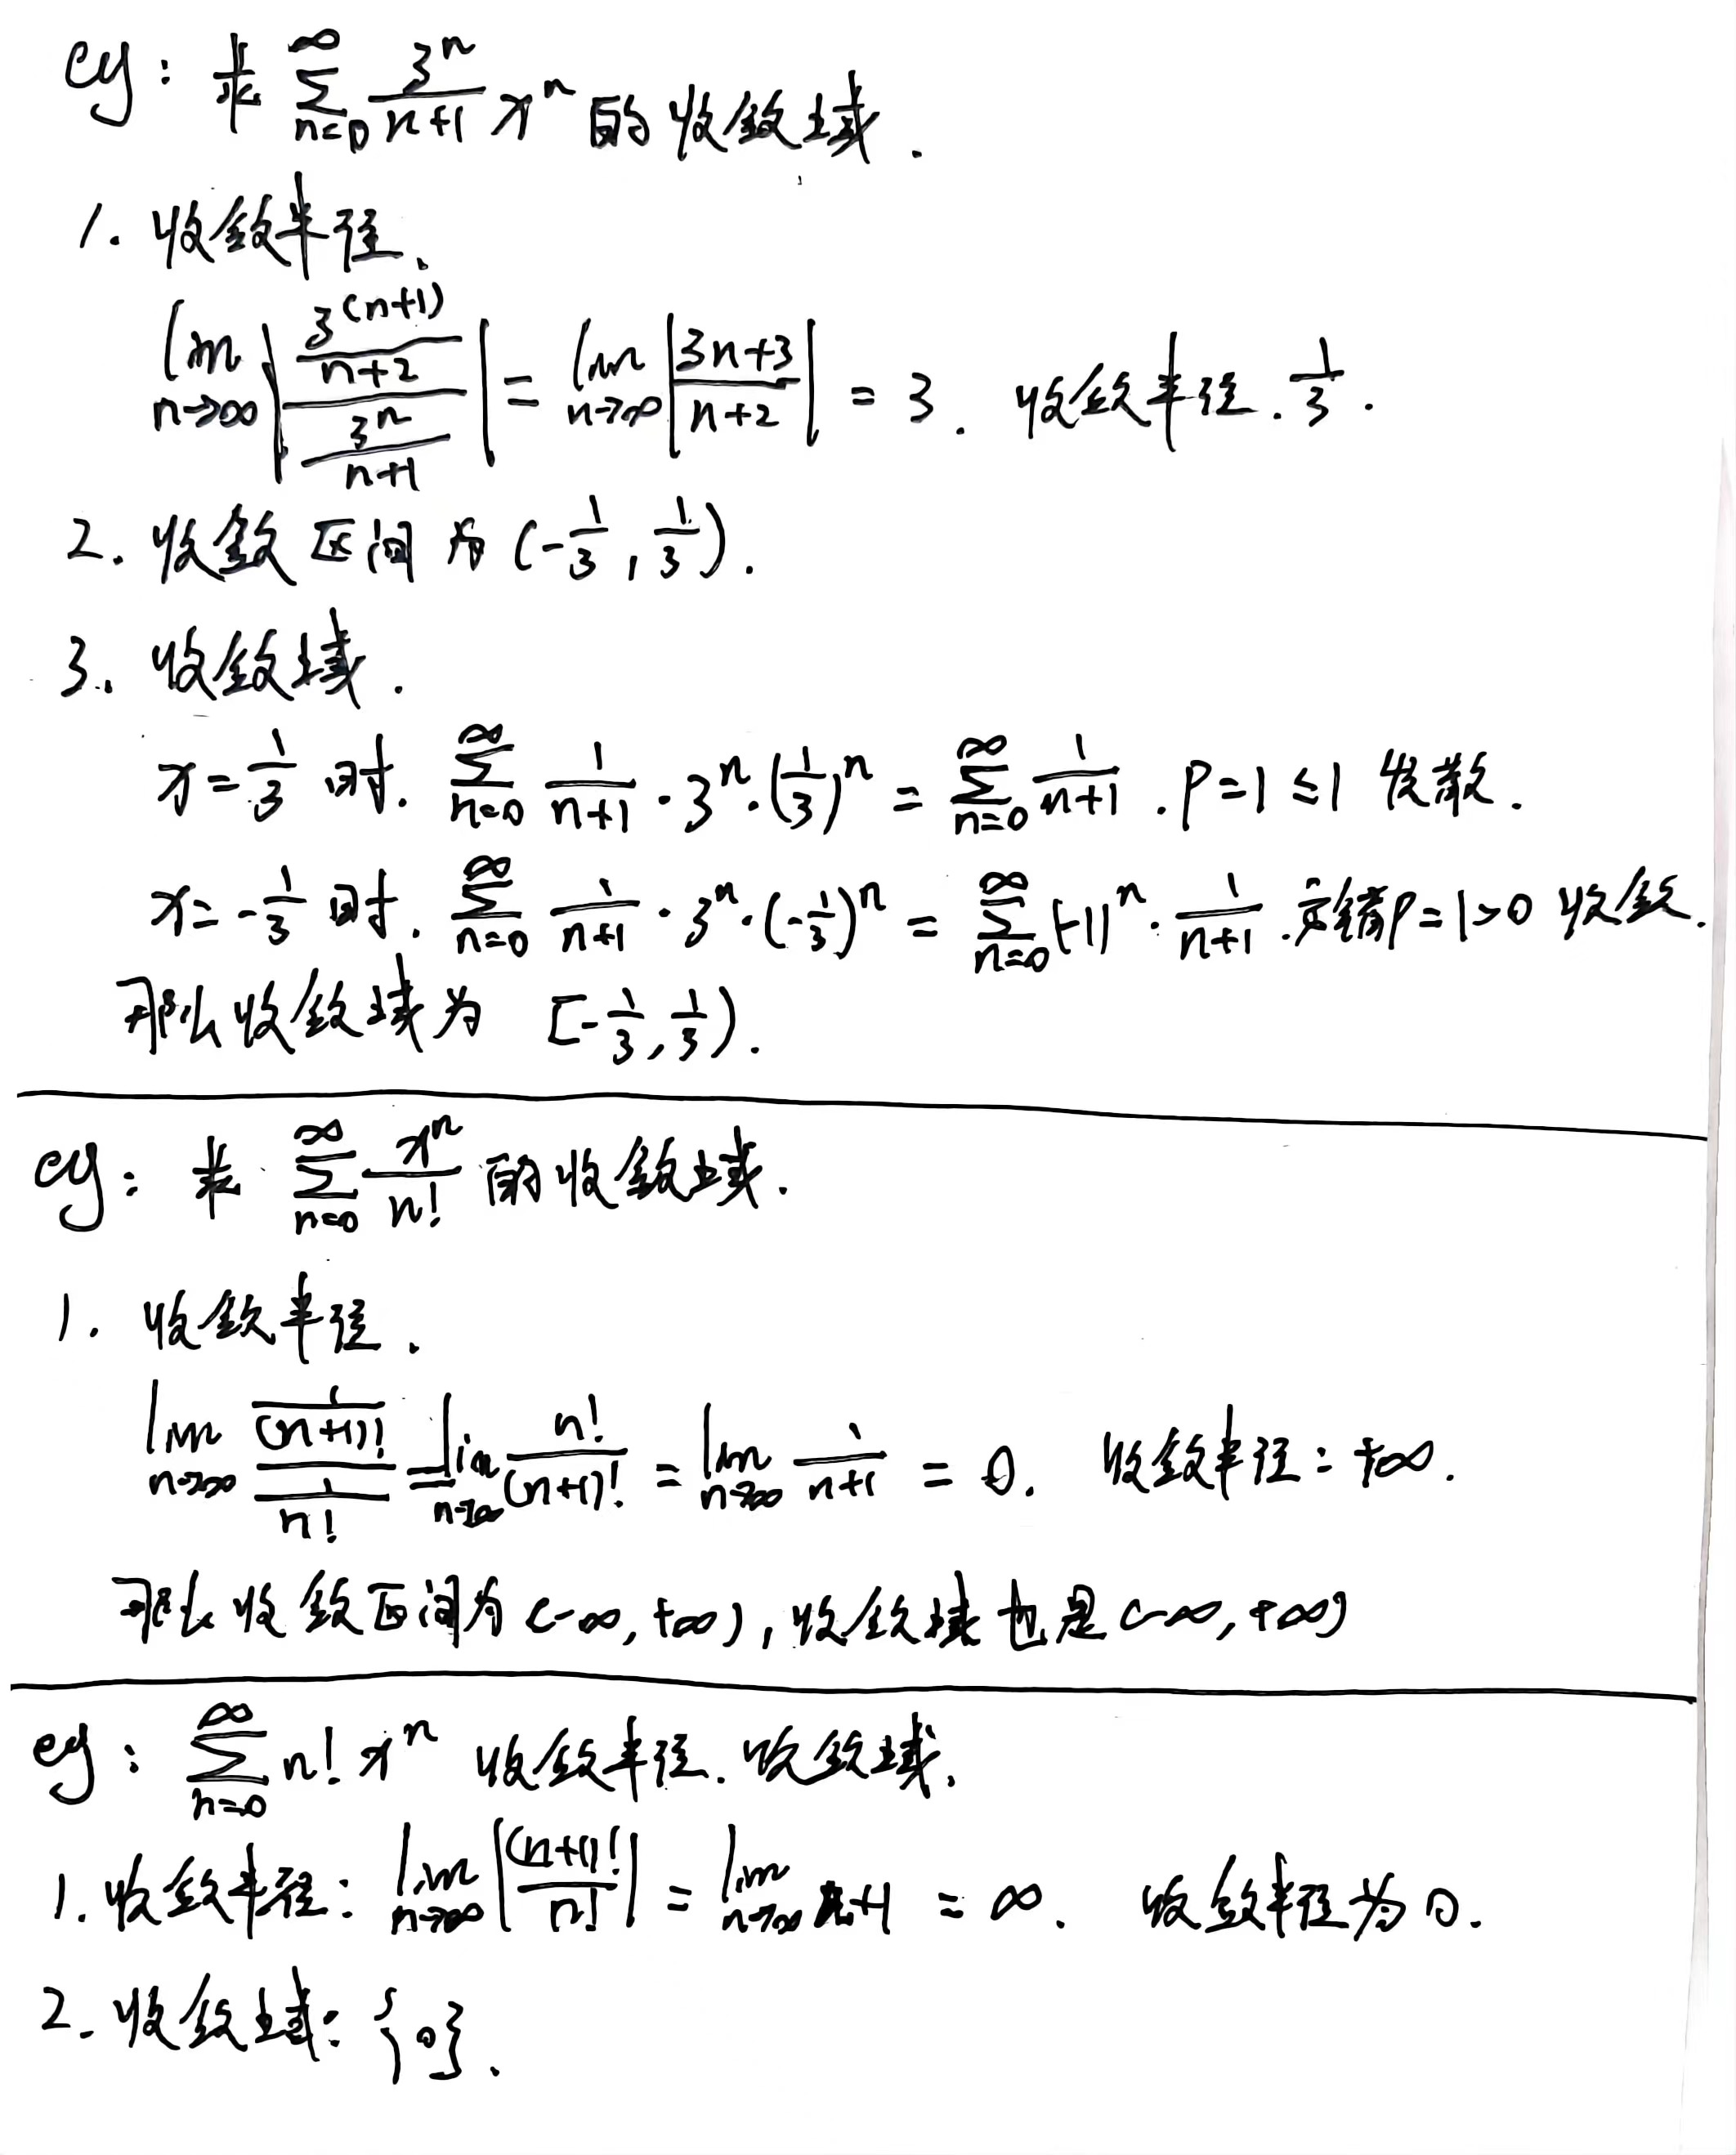 eg: 求 $\sum_{n=0}^{\infty} \frac{3^n}{n+1} x^n$ 的收敛域.
1. 收敛半径.
$\lim_{n\to\infty} \left| \frac{\frac{3^{(n+1)}}{n+2}}{\frac{3^n}{n+1}} \right| = \lim_{n\to\infty} \left| \frac{3n+3}{n+2} \right| = 3$. 收敛半径. $\frac{1}{3}$.
2. 收敛区间为 $(-\frac{1}{3}, \frac{1}{3})$.
3. 收敛域.
$x=\frac{1}{3}$ 时. $\sum_{n=0}^{\infty} \frac{1}{n+1} \cdot 3^n \cdot (\frac{1}{3})^n = \sum_{n=0}^{\infty} \frac{1}{n+1}$. $P=1 \leq 1$ 发散.
$x=-\frac{1}{3}$ 时. $\sum_{n=0}^{\infty} \frac{1}{n+1} \cdot 3^n \cdot (-\frac{1}{3})^n = \sum_{n=0}^{\infty} (-1)^n \cdot \frac{1}{n+1}$. 交错 $P=1>0$ 收敛.
那么收敛域为 $[-\frac{1}{3}, \frac{1}{3})$.
eg: 求 $\sum_{n=0}^{\infty} \frac{x^n}{n!}$ 的收敛域.
1. 收敛半径.
$\lim_{n\to\infty} \frac{\frac{1}{(n+1)!}}{\frac{1}{n!}} = \lim_{n\to\infty} \frac{n!}{(n+1)!} = \lim_{n\to\infty} \frac{1}{n+1} = 0$. 收敛半径: $+\infty$.
那么收敛区间为 $(-\infty, +\infty)$, 收敛域也是 $(-\infty, +\infty)$
eg: $\sum_{n=0}^{\infty} n! x^n$ 收敛半径. 收敛域.
1. 收敛半径: $\lim_{n\to\infty} \left| \frac{(n+1)!}{n!} \right| = \lim_{n\to\infty} n+1 = \infty$. 收敛半径为 0.
2. 收敛域: $\{0\}$.